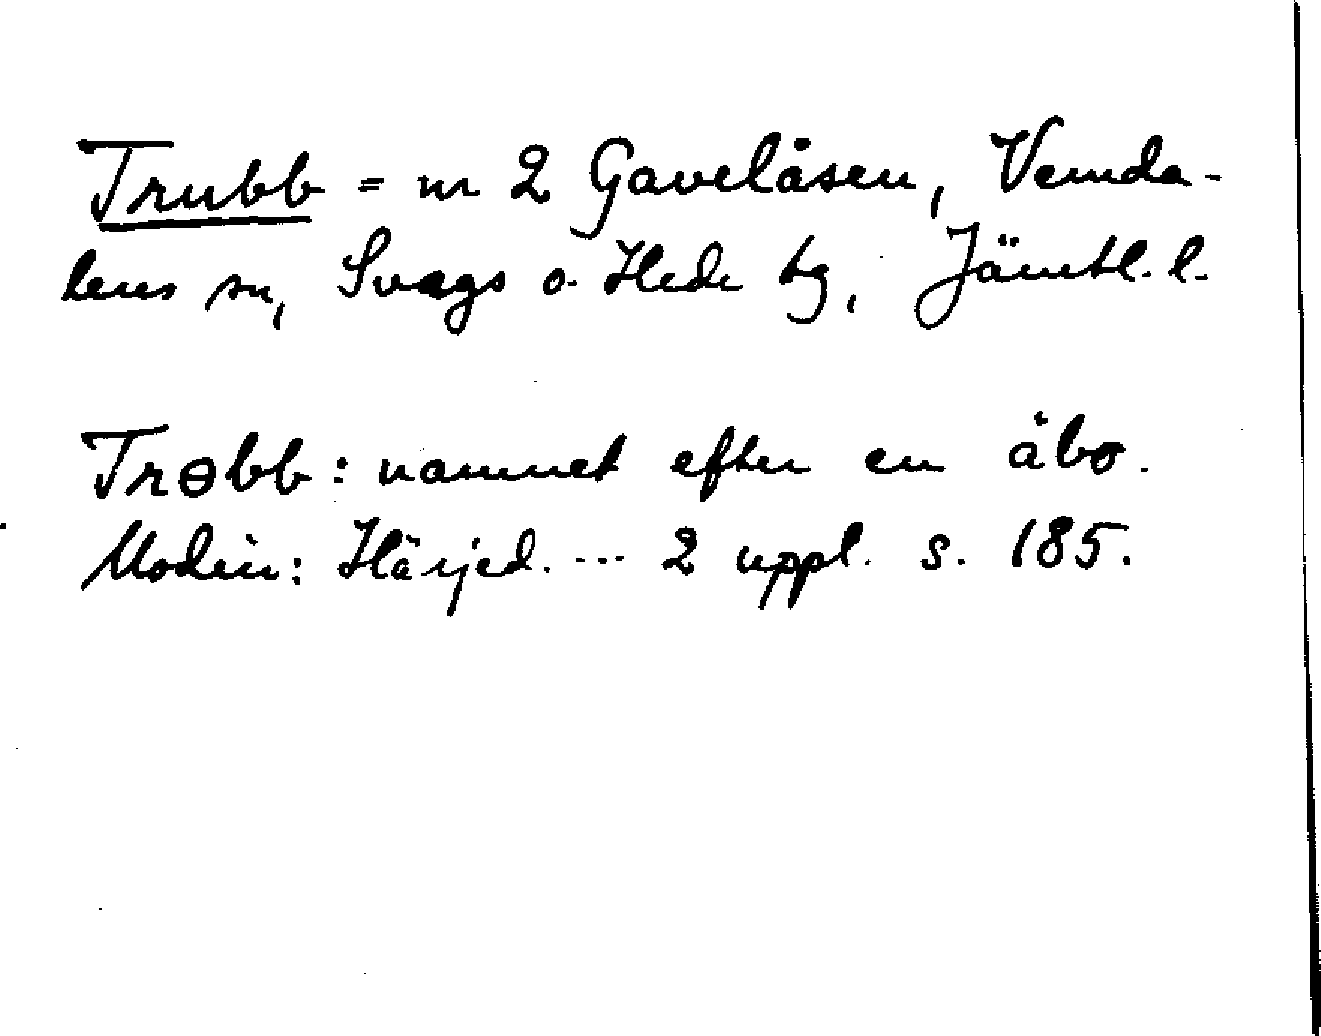 Trubb = nr 2 Gavelåsen, Vemda-
lens sn, Svegs o. Hede tg, Jämtl. l.
Trɵbb: namnet efter en åbo.
Modin: Härjed. ... 2 uppl. s. 185.